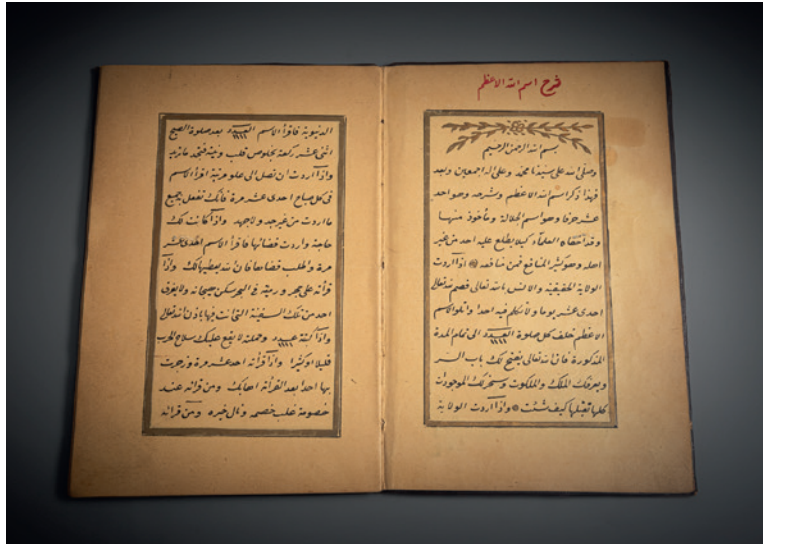 شرح اسم الله الاعظم
بسم الله الرحمن الرحيم
وصلى الله على سيدنا محمد وعلى اله اجمعين وبعد
فهذا ذكر اسم الله الاعظم وشرحه وهو احد
عشر حرفا وهو اسم الجلالة ومأخوذ منها
وقد اخفاه العلماء كيلا يطلع عليه احد من غير
اهله وهو كثير المنافع فمن منافعه اذا اردت
الولاية الحقيقية والانس بالله تعالى فصم لله تعالى
احدى عشر يوما ولا تكلم فيه احدا واتلو الاسم
الاعظم خلف كل صلوة العدد الى تمام المدة
المذكورة فان الله تعالى يفتح لك باب السر
ويعرفك الملك والملكوت وسخر لك الموجودات
كلها تقبلها كيف شئت واذا اردت الولاية
الدنيوية فاقرأ الاسم العدد بعد صلوة الصبح
اثنى عشر ركعة بخلوص قلب ونية فتجد ما تريد
واذا اردت ان تصل الى علو مرتبة اقرأ الاسم
فى كل صباح احدى عشر مرة فانك تفعل بجميع
ما اردت من غير جد ولا جهد واذا كانت لك
حاجة واردت قضائها فاقرأ الاسم احدى عشر
مرة واطلب قضاءها فان الله يعطيها لك واذا
قرأته على حجر ورميته فى البحر سكن هيجانه ولا يغرق
احد من تلك السفينة التى انت فيها باذن الله تعالى
واذا كتبته عدد وحملته لا يقع عليك سلاح الحرب
قليلا او كثيرا واذا قرأته احد عشر مرة وزجرت
بها احدا بعد القرائة اجابك ومن قرائه عند
خصومة غلب خصمه ونال خيره ومن قرائه